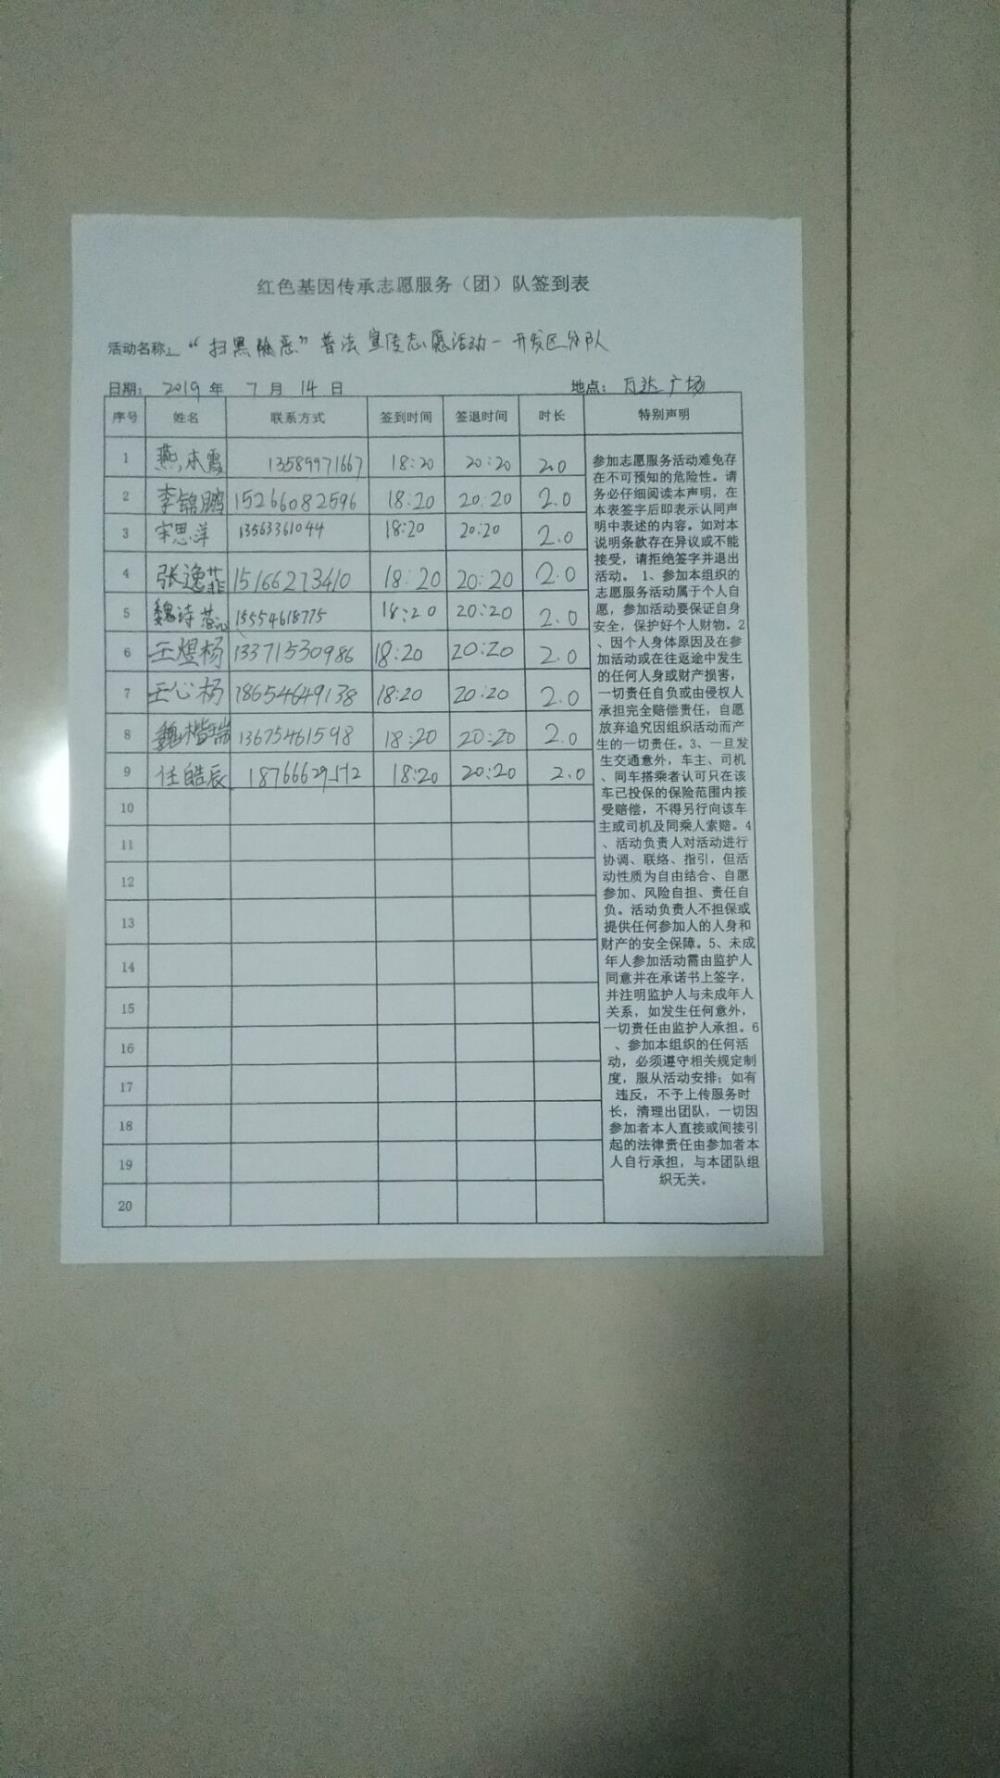 红色基因传承志愿服务（团）队签到表
活动名称：“扫黑除恶”普法宣传志愿活动－开发区分队
日期： 2019 年 7 月 14 日 地点：万达广场
序号 姓名 联系方式 签到时间 签退时间 时长 特别声明
1 燕本霞 13589971667 18:20 20:20 2.0
2 李锦鹏 15266082596 18:20 20:20 2.0
3 宋思洋 13563361044 18:20 20:20 2.0
4 张逸菲 15166273410 18:20 20:20 2.0
5 魏诗 15554618775 18:20 20:20 2.0
6 王煜杨 13371530986 18:20 20:20 2.0
7 王心杨 18654649138 18:20 20:20 2.0
8 魏楷瑞 13675461598 18:20 20:20 2.0
9 任皓辰 18766629512 18:20 20:20 2.0
10
11
12
13
14
15
16
17
18
19
20
参加志愿服务活动难免存
在不可预知的危险性。请
务必仔细阅读本声明，在
本表签字后即表示认同声
明中表述的内容。如对本
说明条款存在异议或不能
接受，请拒绝签字并退出
活动。 1、参加本组织的
志愿服务活动属于个人自
愿，参加活动要保证自身
安全，保护好个人财物。2
、因个人身体原因及在参
加活动或在往返途中发生
的任何人身或财产损害，
一切责任自负或由侵权人
承担完全赔偿责任，自愿
放弃追究因组织活动而产
生的一切责任。3、一旦发
生交通意外，车主、司机
、同车搭乘者认可只在该
车已投保的保险范围内接
受赔偿，不得另行向该车
主或司机及同乘人索赔。4
、活动负责人对活动进行
协调、联络、指引，但活
动性质为自由结合、自愿
参加、风险自担、责任自
负。活动负责人不担保或
提供任何参加人的人身和
财产的安全保障。5、未成
年人参加活动需由监护人
同意并在承诺书上签字，
并注明监护人与未成年人
关系，如发生任何意外，
一切责任由监护人承担。6
、参加本组织的任何活
动，必须遵守相关规定制
度，服从活动安排；如有
违反，不予上传服务时
长，清理出团队，一切因
参加者本人直接或间接引
起的法律责任由参加者本
人自行承担，与本团队组
织无关。